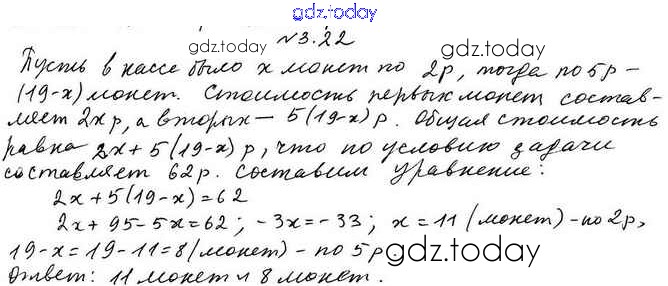 gdz.today
№3.22
gdz.today gdz.today
Пусть в кассе было х монет по 2р, тогда по 5р –
(19-х) монет. Стоимость первых монет состав-
ляет 2х р, а вторых – 5(19-х) р. Общая стоимость
равна 2х + 5(19-х) р, что по условию задачи
составляет 62р. Составим уравнение:
2х + 5(19-х) = 62
2х + 95 - 5х = 62; -3х = -33; х = 11 (монет) - по 2р,
19-х = 19-11 = 8 (монет) - по 5р.
gdz.today
Ответ: 11 монет и 8 монет.